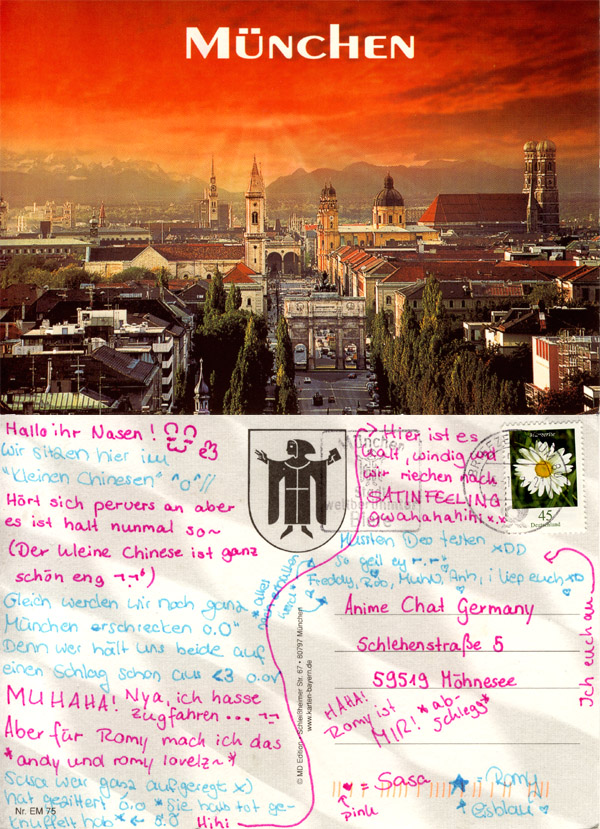 MÜNCHEN
Hallo ihr Nasen!
Wir sitzen hier im
"Kleinen Chinesen" ^o^//
Hört sich pervers an aber
es ist halt nunmal so~
(Der kleine Chinese ist ganz
schön eng ¬¬')
Gleich werden wir noch ganz
München erschrecken o.O"
Denn wer hält uns beide auf
einen Schlag schon aus <3 o.ov
MUHAHA! Nya, ich hasse
zugfahren... ¬¬
Aber für Romy mach ich das
*andy und romy lovelz~*
Sasa war ganz aufgeregt x)
hat gezittert o.O *Sie haus tot ge-
knuffelt hab* <- o.O
Hihi
Nr. EM 75
-> Hier ist es
kalt, windig und
wir riechen nach
SATINFEELING
gwahahahihi *.*
Mussten Deo testen xDD
so geil ey
Freddy, Rob, Muhki, Anh, i liep euch xD
Ich euch au
München
45
Deutschland
Anime Chat Germany
Schlehenstraße 5
59519 Möhnesee
HAHA!
Romy ist
MIR! *ab-
schlegg*
♥ = Sasa
pink
★ = Romy
Eisblau
© MD Edition · Schleißheimer Str. 67 · 80797 München
www.karten-bayern.de